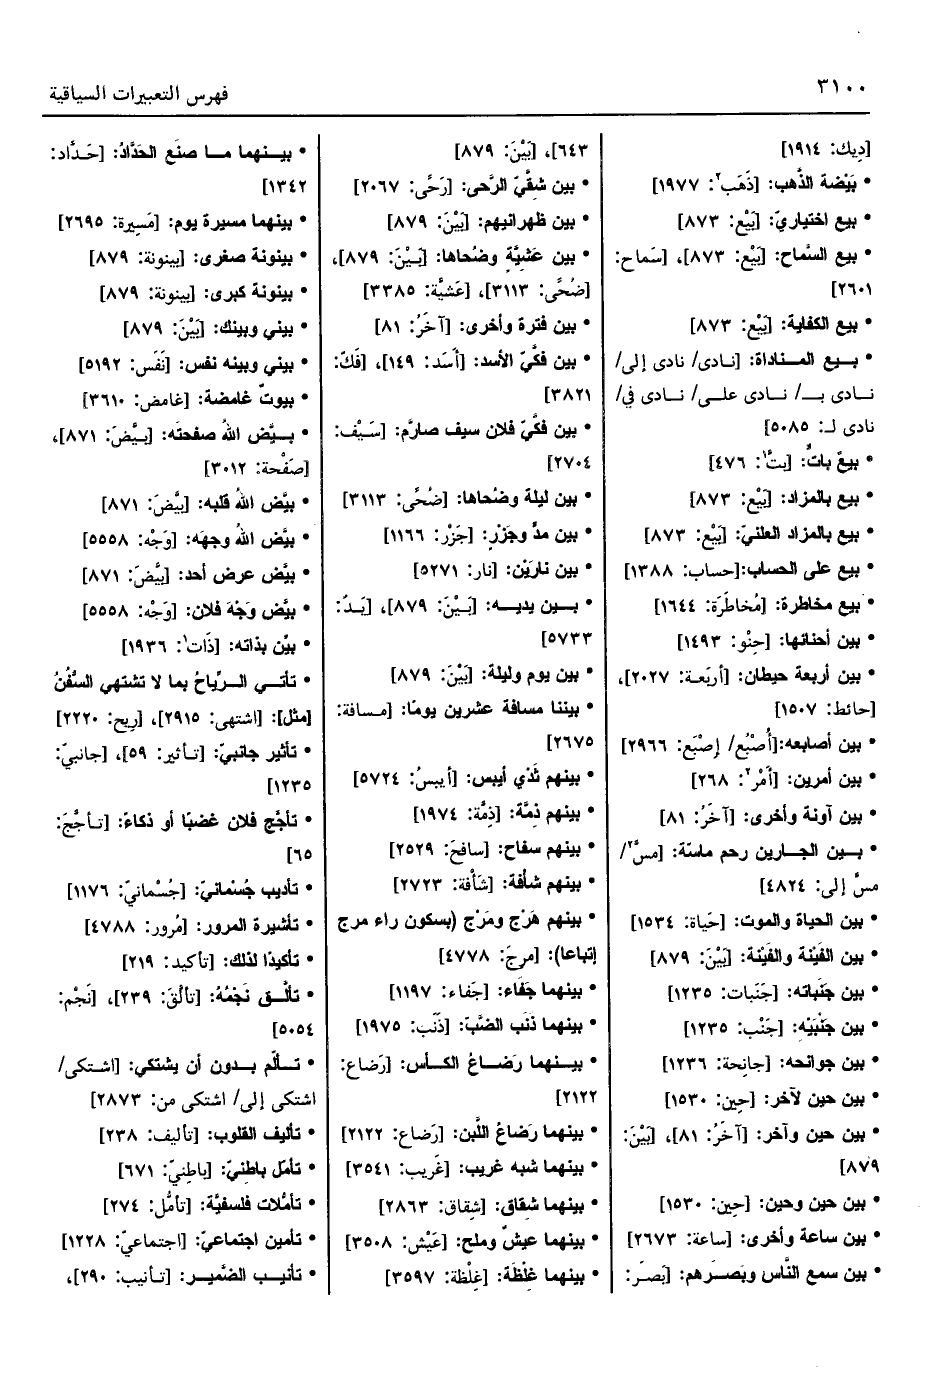 ٣١٠٠
فهرس التعبيرات السياقية
[ديك: ١٩١٤]
• بَيْضة الذَّهب: [ذَهَب٢: ١٩٧٧]
• بيع اختياريّ: [بَيْع: ٨٧٣]
• بيع السَّماح: [بَيْع: ٨٧٣]، [سَماح:
٢٦٠١]
• بيع الكفاية: [بَيْع: ٨٧٣]
• بـيـع المـنـاداة: [نـادى/ نادى إلى/
نـادى بـ/ نـادى علـى/ نـادى في/
نادى لـ: ٥٠٨٥]
• بيعٌ باتٌّ: [بتّ١: ٤٧٦]
• بيع بالمزاد: [بَيْع: ٨٧٣]
• بيع بالمزاد العلنيّ: [بَيْع: ٨٧٣]
• بيع على الحساب:[حساب: ١٣٨٨]
• بيع مخاطرة: [مُخاطَرَة: ١٦٤٤]
• بين أحنائها: [حِنْو: ١٤٩٣]
• بين أربعة حيطان: [أربَعـة: ٢٠٢٧]،
[حائط: ١٥٠٧]
• بين أصابعه:[أُصْبُع/ إصْبَع: ٢٩٦٦]
• بين أمرين: [أمْر٢: ٢٦٨]
• بين آونة وأخرى: [آخَرُ: ٨١]
• بـين الجـارين رحم ماسّة: [مسَّ٢/
مسَّ إلى: ٤٨٢٤]
• بين الحياة والموت: [حَياة: ١٥٣٤]
• بين الفَيْنة والفَيْنة: [بَيْنَ: ٨٧٩]
• بين جَنَباته: [جَنَبات: ١٢٣٥]
• بين جَنْبَيْه: [جَنْب: ١٢٣٥]
• بين جوانحه: [جانِحة: ١٢٣٦]
• بين حين لآخر: [حِين: ١٥٣٠]
• بين حين وآخر: [آخَرُ: ٨١]، [بَيْنَ:
٨٧٩]
• بين حين وحين: [حِين: ١٥٣٠]
• بين ساعة وأخرى: [ساعة: ٢٦٧٣]
• بين سمع النَّاس وبَصـَرهم: [بَصـَر:
٦٤٣]، [بَيْنَ: ٨٧٩]
• بين شقَّيْ الرَّحى: [رَحًى: ٢٠٦٧]
• بين ظهرانيهم: [بَيْنَ: ٨٧٩]
• بين عَشيَّةٍ وضُحاها: [بَـيْنَ: ٨٧٩]،
[ضُحًى: ٣١١٣]، [عَشيَّة: ٣٣٨٥]
• بين فترة وأخرى: [آخَرُ: ٨١]
• بين فكَّيْ الأسد: [أسَد: ١٤٩]، [فَكّ:
٣٨٢١]
• بين فكَّيْ فلان سيف صارم: [سَيْف:
٢٧٠٤]
• بين ليلة وضُحاها: [ضُحًى: ٣١١٣]
• بين مدٍّ وجَزْرٍ: [جَزْر: ١١٦٦]
• بين نارَيْن: [نار: ٥٢٧١]
• بـــين يديـــه: [بَـيْنَ: ٨٧٩]، [يَـدٌ:
٥٧٣٣]
• بين يوم وليلة: [بَيْنَ: ٨٧٩]
• بيننا مسافة عشرين يومًا: [مـسافة:
٢٦٧٥]
• بينهم ثَدْي أيبس: [أيبسُ: ٥٧٢٤]
• بينهم ذمَّة: [ذِمَّة: ١٩٧٤]
• بينهم سفاح: [سافحَ: ٢٥٢٩]
• بينهم شأفة: [شَأْفة: ٢٧٢٣]
• بينهم هَرْج ومَرْج (بسكون راء مرج
إتباعا): [مرجَ: ٤٧٧٨]
• بينهما جَفَاء: [جَفاء: ١١٩٧]
• بينهما ذَنَب الضَّبّ: [ذَنَب: ١٩٧٥]
• بيــنهما رَضـاعُ الكـأس: [رَضاع:
٢١٢٢]
• بينهما رَضاعُ اللَّبن: [رَضاع: ٢١٢٢]
• بينهما شبه غريب: [غَريب: ٣٥٤١]
• بينهما شقاق: [شِقاق: ٢٨٦٣]
• بينهما عيشٌ وملح: [عَيْش: ٣٥٠٨]
• بينهما غلْظَة: [غِلْظة: ٣٥٩٧]
• بيـنهما مـا صنَع الحَدَّادُ: [حَـدَّاد:
١٣٤٢]
• بينهما مسيرة يوم: [مَسِيرة: ٢٦٩٥]
• بينونة صغرى: [بينونة: ٨٧٩]
• بينونة كبرى: [بينونة: ٨٧٩]
• بيني وبينك: [بَيْنَ: ٨٧٩]
• بيني وبينه نفس: [نَفَس: ٥١٩٢]
• بيوتٌ غامضة: [غامض: ٣٦١٠]
• بـيَّض اللهُ صفحتَه: [بـيَّضَ: ٨٧١]،
[صَفْحة: ٣٠١٢]
• بيَّض اللهُ قلبه: [بيَّضَ: ٨٧١]
• بيَّض اللهُ وجهَه: [وَجْه: ٥٥٥٨]
• بيَّض عرض أحد: [بيَّضَ: ٨٧١]
• بيَّض وَجْهَ فلان: [وَجْه: ٥٥٥٨]
• بيّن بذاته: [ذَات١: ١٩٣٦]
• تأتـي الـرِّياحُ بما لا تشتهي السُّفُنُ
[مثل]: [اشتهى: ٢٩١٥]، [رِيح: ٢٢٢٠]
• تأثير جانبيّ: [تـأثير: ٥٩]، [جانبيّ:
١٢٣٥]
• تأجَّج فلان غضبًا أو ذكاءً: [تـأجَّجَ:
٦٥]
• تأديب جُسْمانيّ: [جُسْمانيّ: ١١٧٦]
• تأشيرة المرور: [مُرور: ٤٧٨٨]
• تأكيدًا لذلك: [تأكيد: ٢١٩]
• تألَّـق نَجْمُهُ: [تألَّقَ: ٢٣٩]، [نَجْم:
٥٠٥٤]
• تـألّم بـدون أن يشتكي: [اشـتكى/
اشتكى إلى/ اشتكى من: ٢٨٧٣]
• تأليف القلوب: [تأليف: ٢٣٨]
• تأمّل باطنيّ: [باطِنيّ: ٦٧١]
• تأمُّلات فلسفيَّة: [تأمُّل: ٢٧٤]
• تأمين اجتماعيّ: [اجتماعيّ: ١٢٢٨]
• تأنيـب الضَّميـر: [تـأنيب: ٢٩٠]،